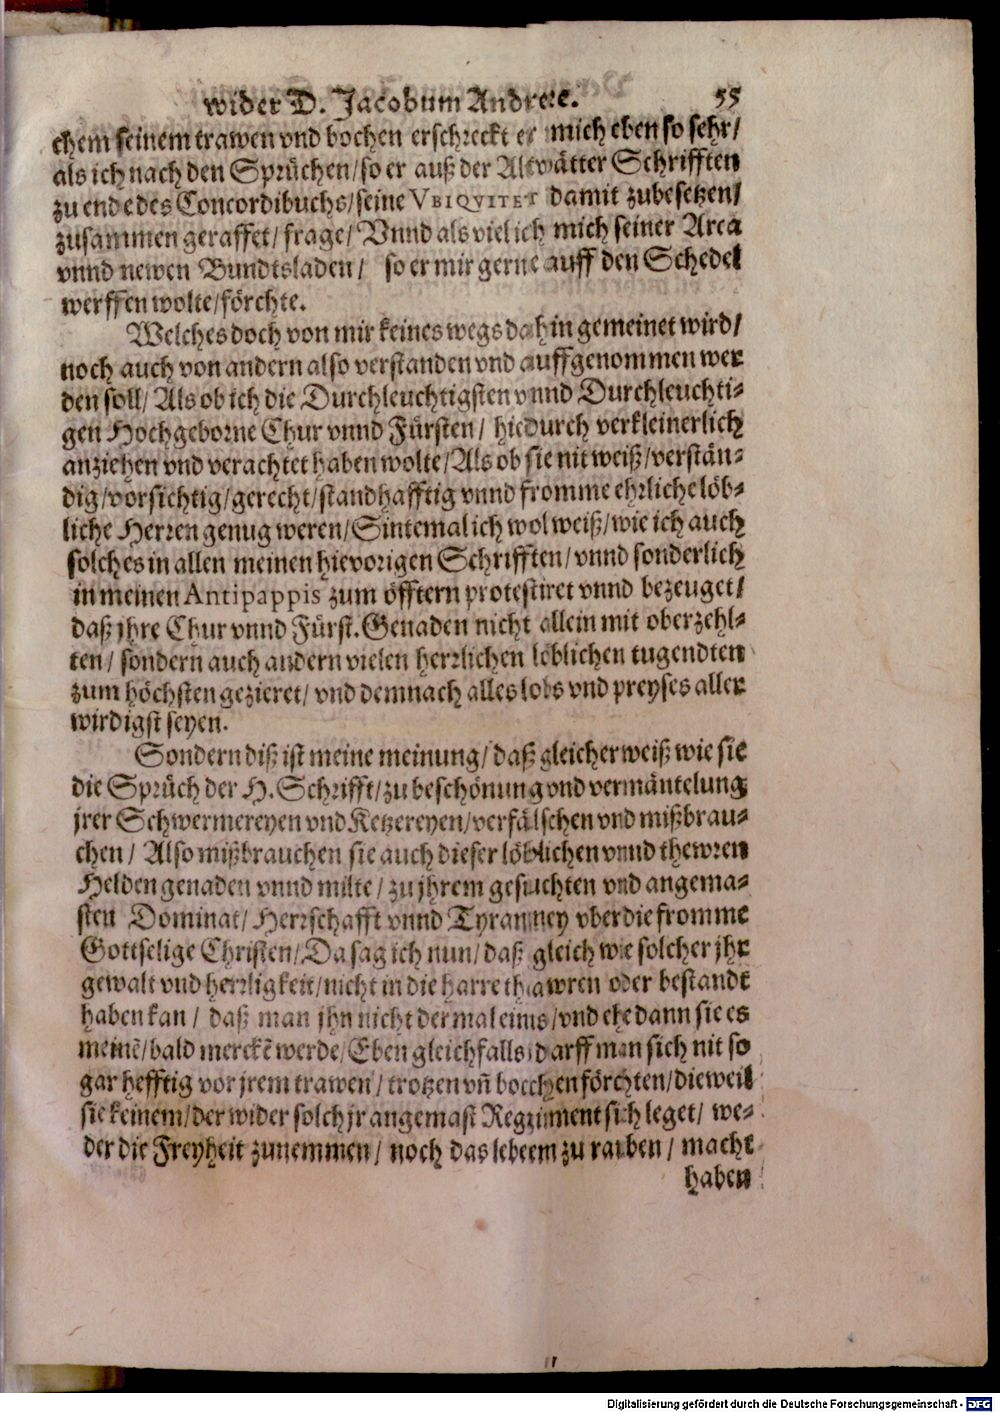 wider D. Jacobum Andreæ. 55
chem seinem trawen vnd bochen erschreckt er mich eben so sehr/
als ich nach den Sprüchen/so er auß der Altvätter Schrifften
zu ende des Concordibuchs/seine VBIQVITET damit zubesetzen/
zusammen geraffet/frage/Vnnd als viel ich mich seiner Arca
vnnd newen Bundtsladen/ so er mir gerne auff den Schedel
werffen wolte/förchte.
Welches doch von mir keines wegs dahin gemeinet wird/
noch auch von andern also verstanden vnd auffgenommen wer
den soll/Als ob ich die Durchleuchtigsten vnnd Durchleuchti-
gen Hochgeborne Chur vnnd Fürsten/ hiedurch verkleinerlich
anziehen vnd verachtet haben wolte/Als ob sie nit weiß/verstän-
dig/vorsichtig/gerecht/standhafftig vnnd fromme ehrliche löb-
liche Herren genug weren/Sintemal ich wol weiß/wie ich auch
solches in allen meinen hievorigen Schrifften/vnnd sonderlich
in meinen Antipappis zum öfftern protestiret vnnd bezeuget/
daß jhre Chur vnnd Fürst. Genaden nicht allein mit oberzehl-
ten/ sondern auch andern vielen herrlichen löblichen tugendten
zum höchsten gezieret/ vnd demnach alles lobs vnd preyses aller
wirdigst seyen.
Sondern diß ist meine meinung/daß gleicher weiß wie sie
die Sprüch der H. Schrifft/zu beschönung vnd vermäntelung
jrer Schwermereyen vnd Ketzereyen/verfälschen vnd mißbrau-
chen/ Also mißbrauchen sie auch dieser löblichen vnnd thewren
Helden genaden vnnd milte/zu jhrem gesuchten vnd angema-
sten Dominat/Herrschafft vnnd Tyranney vber die fromme
Gottselige Christen/Da sag ich nun/daß gleich wie solcher jhr
gewalt vnd herrligkeit/nicht in die harre thawren oder bestandt
haben kan/ daß man jhn nicht dermal eins/vnd ehe dann sie es
meinē/bald merckē werde/Eben gleichfalls darff man sich nit so
gar hefftig vor jrem trawen/trotzen vñ bocchen förchten/dieweil
sie keinem/der wider solch jr angemast Regziment sich leget/ we-
der die Freyheit zunemmen/ noch das lebeem zu rauben/ macht
haben
Digitalisierung gefördert durch die Deutsche Forschungsgemeinschaft - DFG